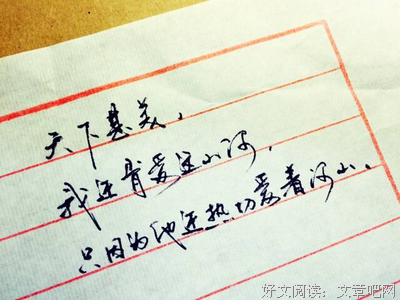 天下甚美，
我还肯爱这山河，
只因为他还热切爱着河山。
好文阅读：文章吧网